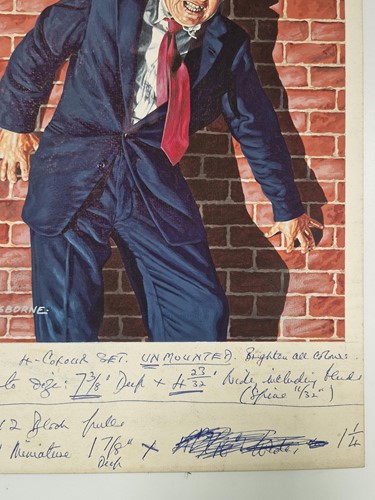 SBORNE-
4-COLOUR SET. UNMOUNTED. Brighten all colours
size: 7 3/8" Deep x 4 23/32" Wide including bleed
(Spine "/32")
12 Block pulls
Miniature 1 7/8" x 1 1/4
Deep